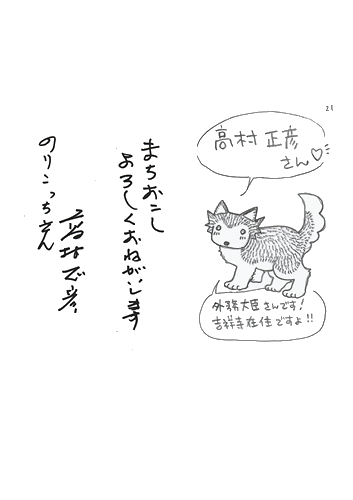 21
高村正彦
さん♡
外務大臣さんです!
吉祥寺在住ですよ!!
まちおこし
よろしくおねがいします
高村正彦
のりこっちさん